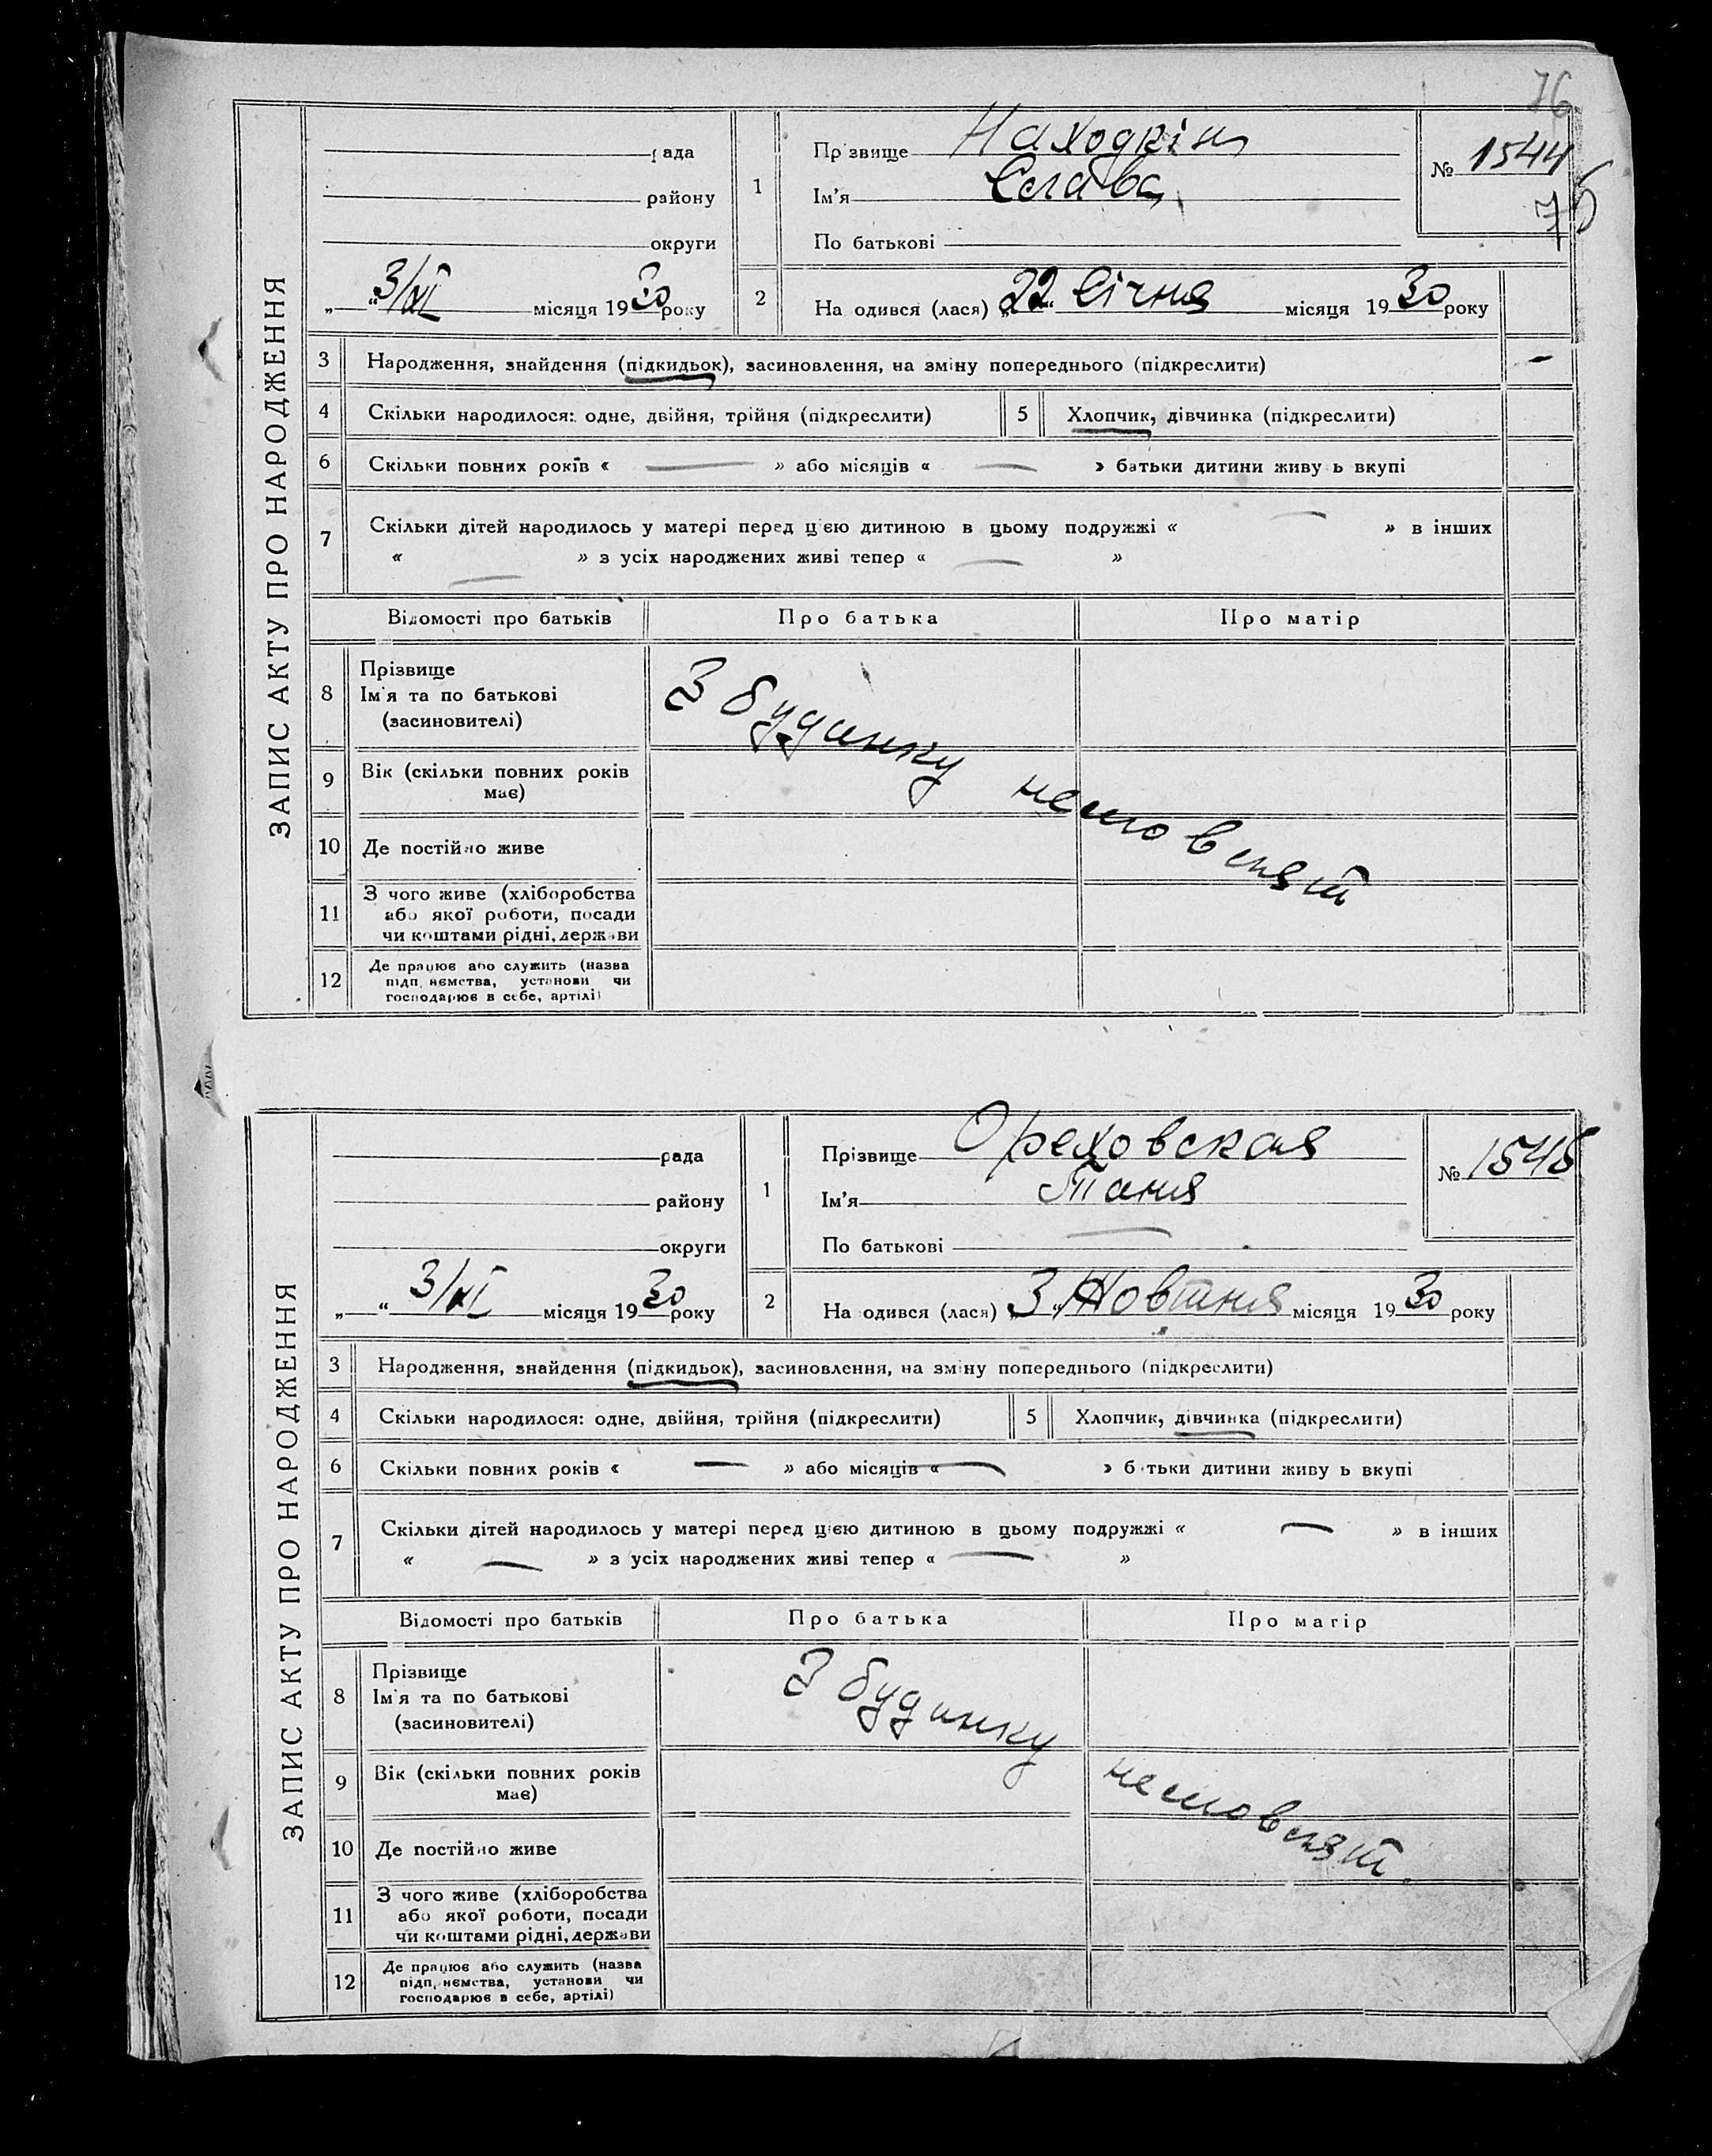 76
ЗАПИС АКТУ ПРО НАРОДЖЕННЯ
рада
району
округи
„ “ 3/XI місяця 1930 року
1
Прізвище Находкін
Ім'я Слава
По батькові
№ 1544
75
2
На одився (лася) „22“ Січня місяця 1930 року
3 Народження, знайдення (підкидьок), засиновлення, на зміну попереднього (підкреслити)
4 Скільки народилося: одне, двійня, трійня (підкреслити)
5 Хлопчик, дівчинка (підкреслити)
6 Скільки повних років « — » або місяців « — » батьки дитини живу ь вкупі
7 Скільки дітей народилось у матері перед цією дитиною в цьому подружжі « — » в інших
« — » з усіх народжених живі тепер « — »
Відомості про батьків Про батька Про матір
8 Прізвище
Ім'я та по батькові
(засиновителі)
З будинку немовлят
9 Вік (скільки повних років
має)
10 Де постійно живе
11 З чого живе (хліборобства
або якої роботи, посади
чи коштами рідні, держави
12 Де працює або служить (назва
підп иємства, установи чи
господарює в себе, артілі)
ЗАПИС АКТУ ПРО НАРОДЖЕННЯ
рада
району
округи
„ “ 3/XI місяця 1930 року
1
Прізвище Ореховская
Ім'я Таня
По батькові —
№ 1545
2
На одився (лася) „3“ Жовтня місяця 1930 року
3 Народження, знайдення (підкидьок), засиновлення, на зміну попереднього (підкреслити)
4 Скільки народилося: одне, двійня, трійня (підкреслити)
5 Хлопчик, дівчинка (підкреслити)
6 Скільки повних років « — » або місяців « — » б тьки дитини живу ь вкупі
7 Скільки дітей народилось у матері перед цією дитиною в цьому подружжі « — » в інших
« — » з усіх народжених живі тепер « — »
Відомості про батьків Про батька Про матір
8 Прізвище
Ім'я та по батькові
(засиновителі)
З будинку немовлят
9 Вік (скільки повних років
має)
10 Де постійно живе
11 З чого живе (хліборобства
або якої роботи, посади
чи коштами рідні, держави
12 Де працює або служить (назва
підп иємства, установи чи
господарює в себе, артілі)